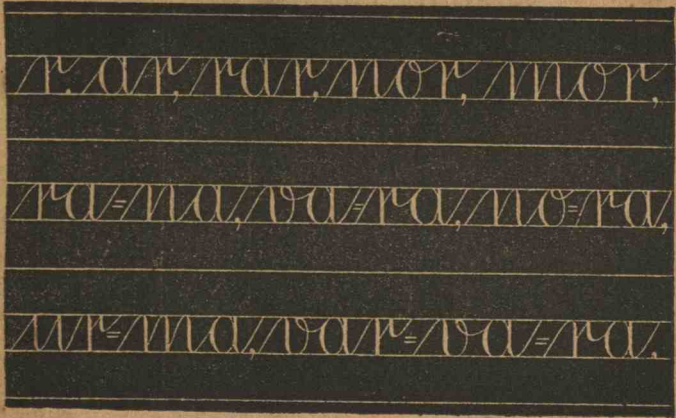 r. ar, rar, nor, mor,
ra=na, va=ra, no=ra,
ur=ma, var=va=ra.